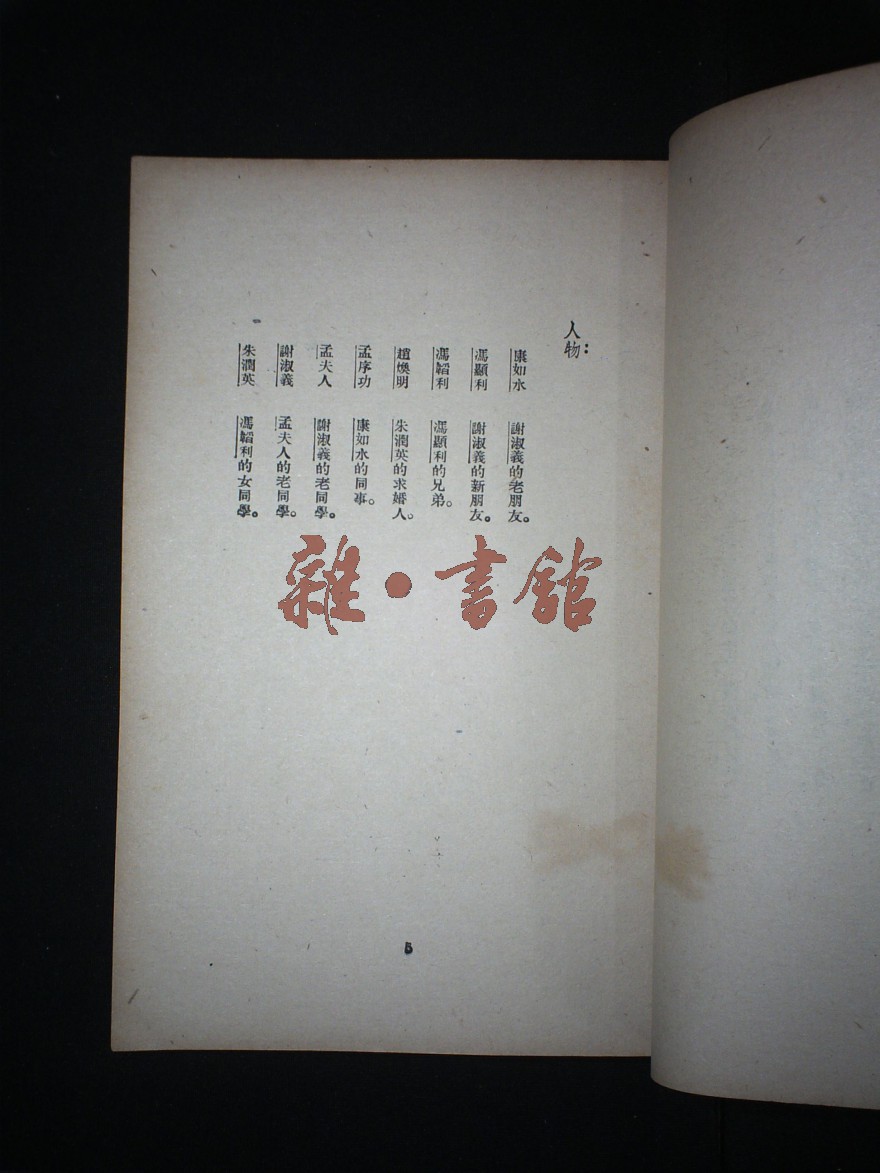 人物：
康如水　謝淑義的老朋友。
馮顯利　謝淑義的新朋友。
馮韜利　馮顯利的兄弟。
趙煥明　朱潤英的求婚人。
孟序功　康如水的同事。
孟夫人　謝淑義的老同學。
謝淑義　孟夫人的老同學。
朱潤英　馮韜利的女同學。
雜·書館
5